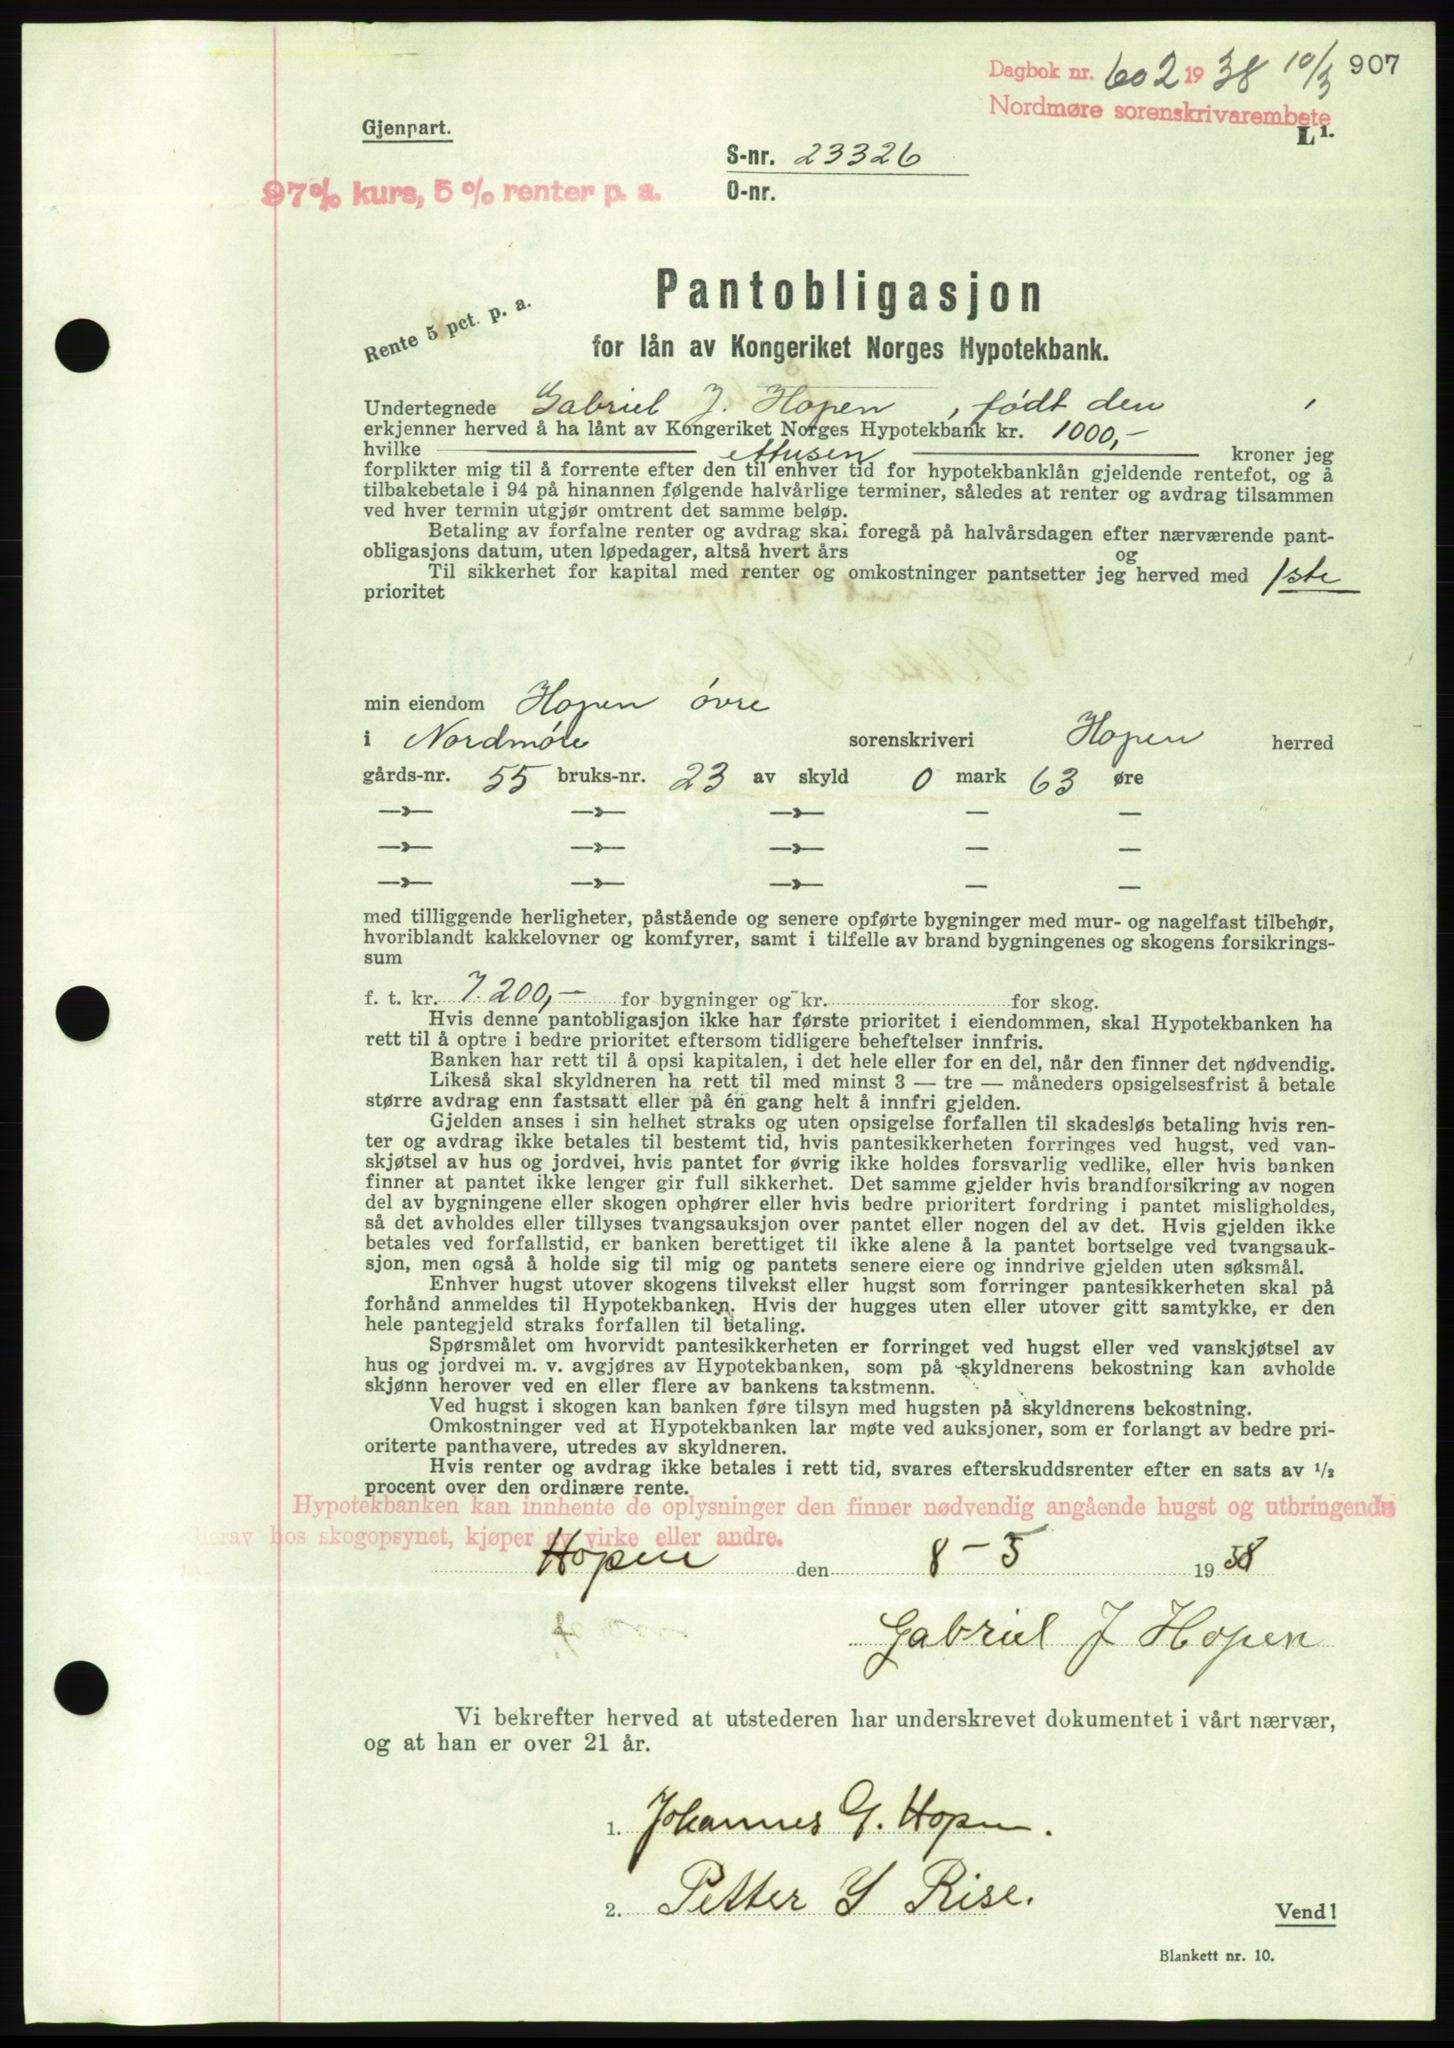 Dagbok nr. 602 1938 10/3 907
Nordmøre sorenskrivarembete
L 1.
Gjenpart.
S-nr. 23326
97% kurs, 5 % renter p. a.
O-nr.
Pantobligasjon
Rente 5 pct. p. a.
for lån av Kongeriket Norges Hypotekbank.
Undertegnede Gabriel J. Hopen, født den ,
erkjenner herved å ha lånt av Kongeriket Norges Hypotekbank kr. 1000,-
hvilke ettusen kroner jeg
forplikter mig til å forrente efter den til enhver tid for hypotekbanklån gjeldende rentefot, og å
tilbakebetale i 94 på hinannen følgende halvårlige terminer, således at renter og avdrag tilsammen
ved hver termin utgjør omtrent det samme beløp.
Betaling av forfalne renter og avdrag skal foregå på halvårsdagen efter nærværende pant-
obligasjons datum, uten løpedager, altså hvert års og
Til sikkerhet for kapital med renter og omkostninger pantsetter jeg herved med 1ste
prioritet
min eiendom Hopen øvre
i Nordmøre sorenskriveri Hopen herred
gårds-nr. 55 bruks-nr. 23 av skyld 0 mark 63 øre
—»— —»— —»— — —
—»— —»— —»— — —
—»— —»— —»— — —
med tilliggende herligheter, påstående og senere opførte bygninger med mur- og nagelfast tilbehør,
hvoriblandt kakkelovner og komfyrer, samt i tilfelle av brand bygningenes og skogens forsikrings-
sum
f. t. kr. 7.200,- for bygninger og kr. for skog.
Hvis denne pantobligasjon ikke har første prioritet i eiendommen, skal Hypotekbanken ha
rett til å optre i bedre prioritet eftersom tidligere beheftelser innfris.
Banken har rett til å opsi kapitalen, i det hele eller for en del, når den finner det nødvendig.
Likeså skal skyldneren ha rett til med minst 3 — tre — måneders opsigelsesfrist å betale
større avdrag enn fastsatt eller på én gang helt å innfri gjelden.
Gjelden anses i sin helhet straks og uten opsigelse forfallen til skadesløs betaling hvis ren-
ter og avdrag ikke betales til bestemt tid, hvis pantesikkerheten forringes ved hugst, ved van-
skjøtsel av hus og jordvei, hvis pantet for øvrig ikke holdes forsvarlig vedlike, eller hvis banken
finner at pantet ikke lenger gir full sikkerhet. Det samme gjelder hvis brandforsikring av nogen
del av bygningene eller skogen ophører eller hvis bedre prioritert fordring i pantet misligholdes,
så det avholdes eller tillyses tvangsauksjon over pantet eller nogen del av det. Hvis gjelden ikke
betales ved forfallstid, er banken berettiget til ikke alene å la pantet bortselge ved tvangsauk-
sjon, men også å holde sig til mig og pantets senere eiere og inndrive gjelden uten søksmål.
Enhver hugst utover skogens tilvekst eller hugst som forringer pantesikkerheten skal på
forhånd anmeldes til Hypotekbanken. Hvis der hugges uten eller utover gitt samtykke, er den
hele pantegjeld straks forfallen til betaling.
Spørsmålet om hvorvidt pantesikkerheten er forringet ved hugst eller ved vanskjøtsel av
hus og jordvei m. v. avgjøres av Hypotekbanken, som på skyldnerens bekostning kan avholde
skjønn herover ved en eller flere av bankens takstmenn.
Ved hugst i skogen kan banken føre tilsyn med hugsten på skyldnerens bekostning.
Omkostninger ved at Hypotekbanken lar møte ved auksjoner, som er forlangt av bedre pri-
oriterte panthavere, utredes av skyldneren.
Hvis renter og avdrag ikke betales i rett tid, svares efterskuddsrenter efter en sats av 1/2
procent over den ordinære rente.
Hypotekbanken kan innhente de oplysninger den finner nødvendig angående hugst og utbringende
herav hos skogopsynet, kjøper av virke eller andre.
Hopen den 8-3 1938
Gabriel J Hopen
Vi bekrefter herved at utstederen har underskrevet dokumentet i vårt nærvær,
og at han er over 21 år.
1. Johannes G. Hopen.
2. Petter Y Rise.
Vend!
Blankett nr. 10.